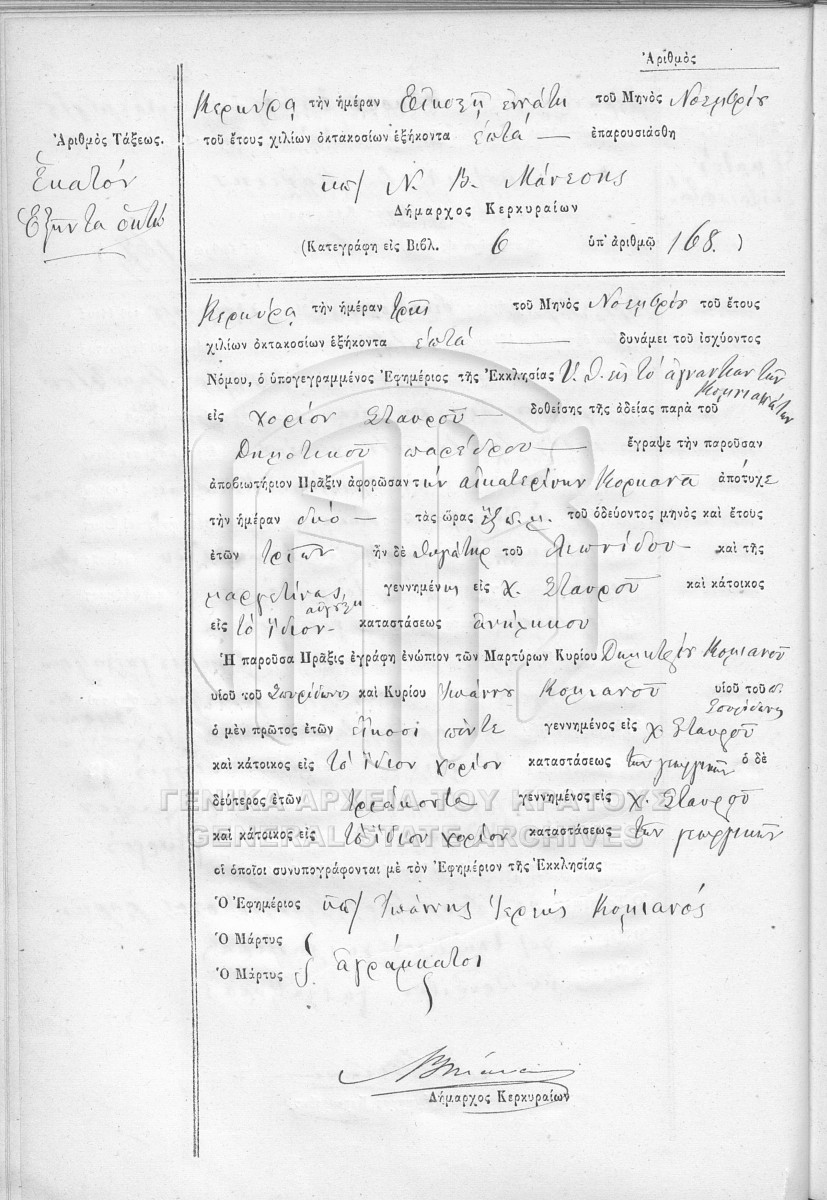 Ἀριθμὸς
Κερκύρᾳ τὴν ἡμέραν Εἰκοστῇ ἐννάτῃ τοῦ Μηνὸς Νοεμβρίου
Ἀριθμὸς Τάξεως. τοῦ ἔτους χιλίων ὀκτακοσίων ἑξήκοντα ἑπτά — ἐπαρουσιάσθη
Ἑκατόν
Ἑξῆντα ὀκτώ
Ν. Β. Μάνεσης
Δήμαρχος Κερκυραίων
(Κατεγράφη εἰς Βιβλ. 6 ὑπ' ἀριθμῷ 168.)
Κερκύρᾳ τὴν ἡμέραν τρεῖς τοῦ Μηνὸς Νοεμβρίου τοῦ ἔτους
χιλίων ὀκτακοσίων ἑξήκοντα ἑπτά — δυνάμει τοῦ ἰσχύοντος
Νόμου, ὁ ὑπογεγραμμένος Ἐφημέριος τῆς Ἐκκλησίας Υ. Θ. εἰς τὸ τῶν
εἰς χορίον Σταυροῦ — δοθείσης τῆς ἀδείας παρὰ τοῦ
Δημοτικοῦ παρέδρου — ἔγραψε τὴν παροῦσαν
ἀποβιωτήριον Πρᾶξιν ἀφορῶσαν τὴν αἰκατερίνην ἀπότυχε
τὴν ἡμέραν δύο — τὰς ὥρας ἕξ π. μ. τοῦ ὁδεύοντος μηνὸς καὶ ἔτους
ἐτῶν τριῶν ἦν δὲ θυγάτηρ τοῦ Λεωνίδου — καὶ τῆς
μαργετίνας γεννημένης εἰς χ. Σταυροῦ καὶ κάτοικος
εἰς τὸ ἴδιον — καταστάσεως ἀνήλικου
Ἡ παροῦσα Πρᾶξις ἐγράφη ἐνώπιον τῶν Μαρτύρων Κυρίου Δημητρίου Κομιανοῦ
υἱοῦ τοῦ Σπυρίδωνος καὶ Κυρίου Ἰωάννου Κομιανοῦ υἱοῦ τοῦ π.
Σπυρίδωνος
ὁ μὲν πρῶτος ἐτῶν εἴκοσι πέντε γεννημένος εἰς χ. Σταυροῦ
καὶ κάτοικος εἰς τὸ ἴδιον χορίον καταστάσεως τῶν γεωργικῶν ὁ δὲ
δεύτερος ἐτῶν τριάκοντα γεννημένος εἰς χ. Σταυροῦ
καὶ κάτοικος εἰς τὸ ἴδιον χορίον καταστάσεως τῶν γεωργικῶν
οἱ ὁποῖοι συνυπογράφονται μὲ τὸν Ἐφημέριον τῆς Ἐκκλησίας
Ὁ Ἐφημέριος Ἰωάννης Ἱερεύς Κομιανός
Ὁ Μάρτυς
Ὁ Μάρτυς ἀγράμματοι
Δήμαρχος Κερκυραίων
ΓΕΝΙΚΑ ΑΡΧΕΙΑ ΤΟΥ ΚΡΑΤΟΥΣ
GENERAL STATE ARCHIVES